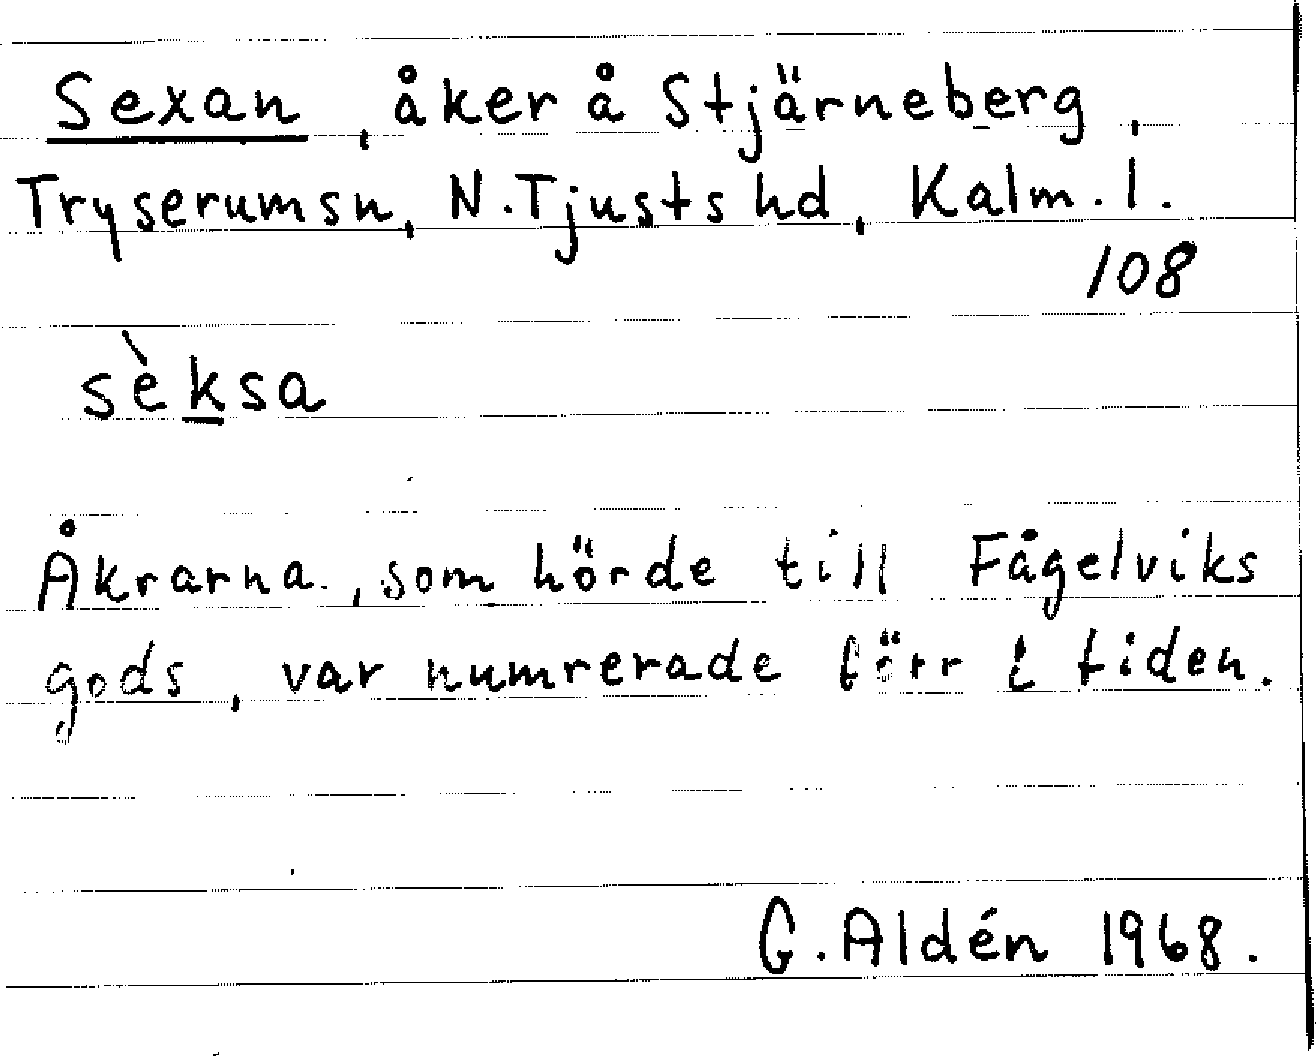 Sexan, åker å Stjärneberg,
Tryserumsn, N.Tjusts hd, Kalm. l.
108
sèksa
Åkrarna, som hörde till Fågelviks
gods, var numrerade förr i tiden.
G. Aldén 1968.